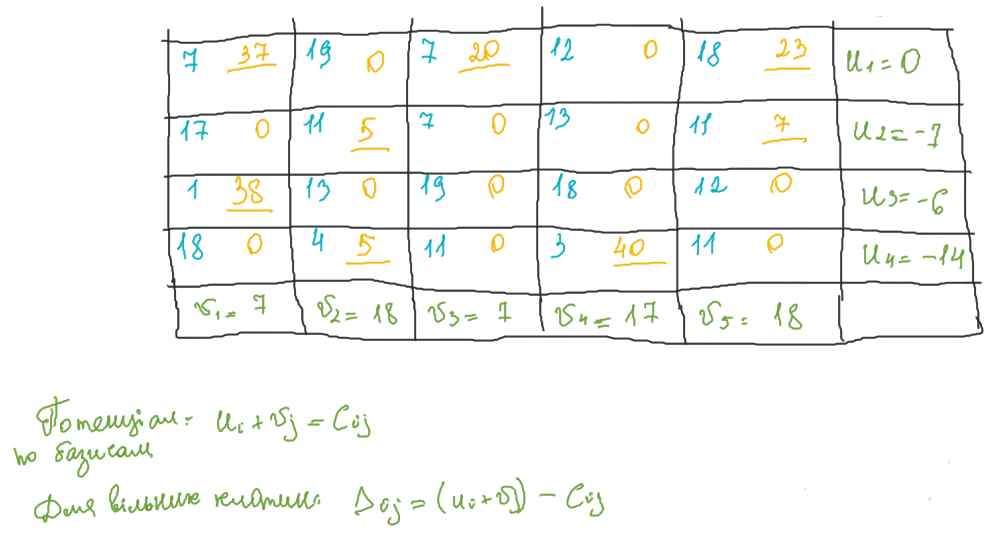 7 37 19 0 7 20 12 0 18 23 u1=0
17 0 11 5 7 0 13 0 11 7 u2=-7
1 38 13 0 19 0 18 0 12 0 u3=-6
18 0 4 5 11 0 3 40 11 0 u4=-14
v1=7 v2=18 v3=7 v4=17 v5=18
Потенціал: ui+vj=Cij
по базисам
Для вільних клітин: Δij=(ui+vj)-Cij